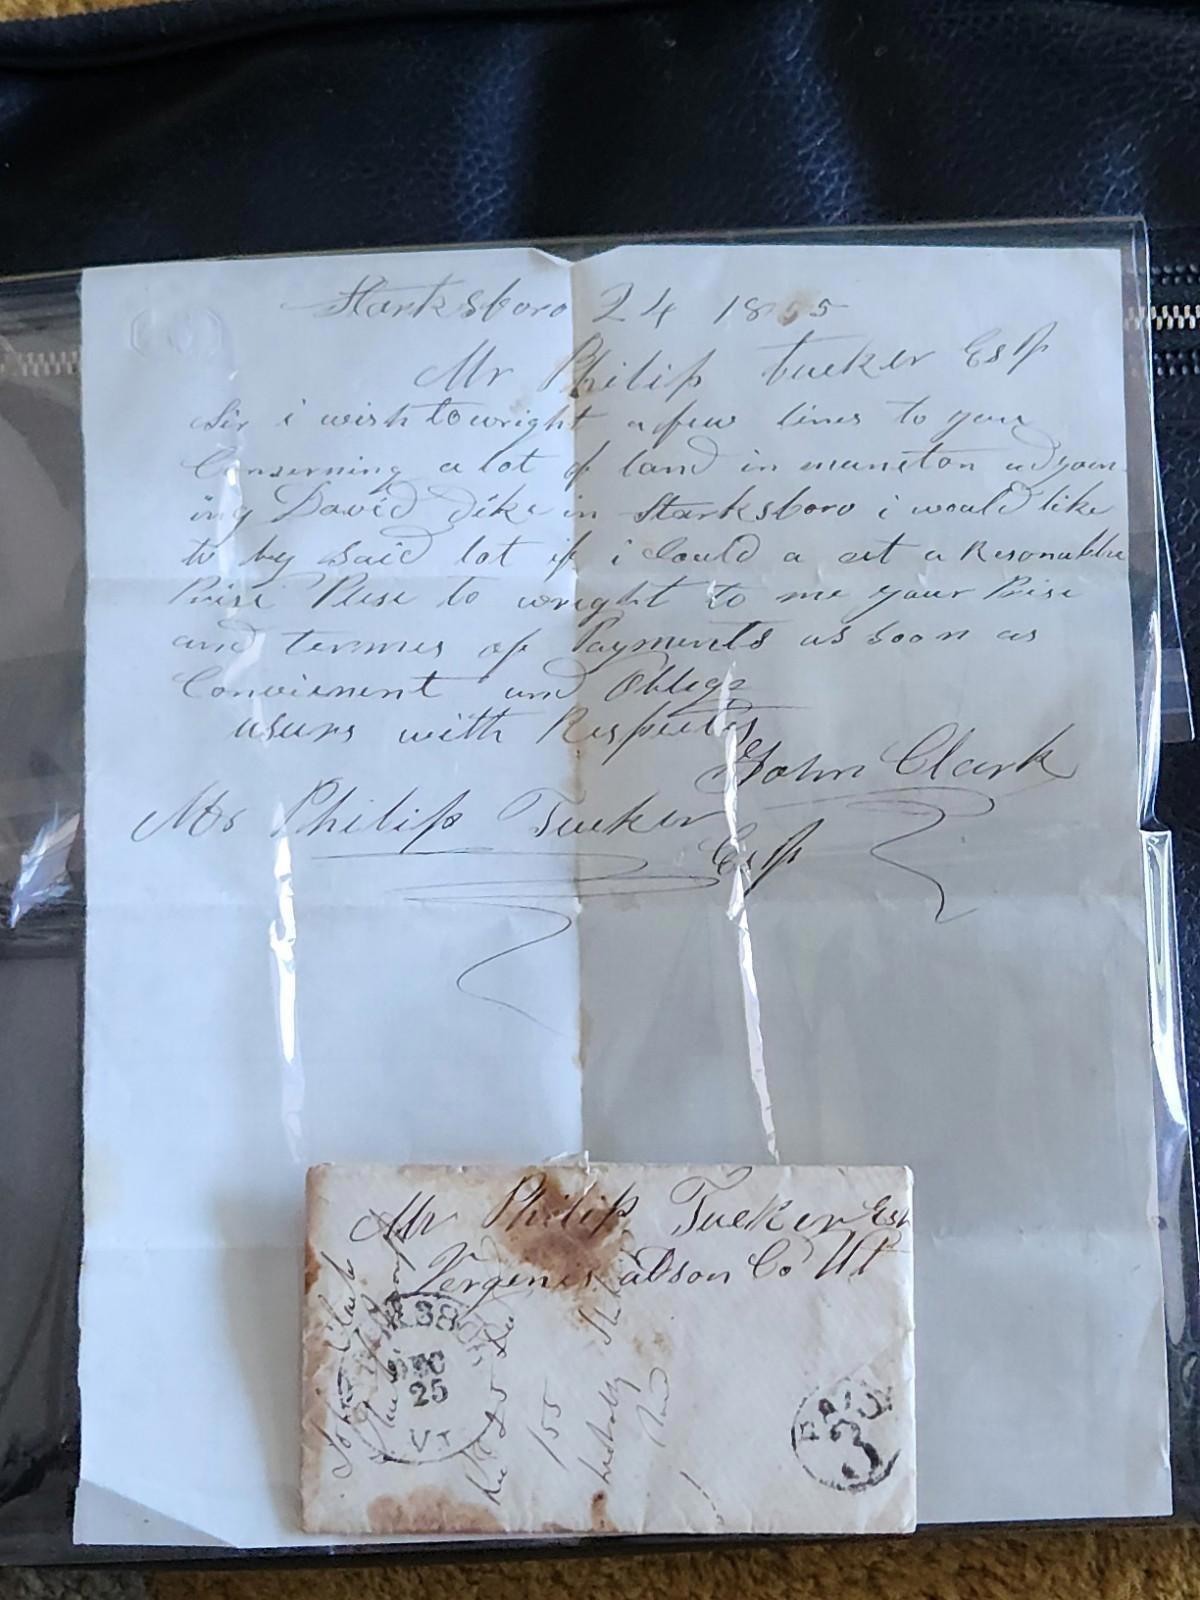 Starksboro 24 1855
Mr Philip Tucker Esq
Sir i wish to wright a few lines to you
Conserning a lot of land in muncton adyoin
ing David Dike in Starksboro i would like
to by said lot if i Could a at a Resonabble
Prise Plese to wright to me your Prise
and termes of Payments as soon as
Convienent and Oblege
yours with Respects
John Clark
Mr Philip Tucker
Esq
Mr Philip Tucker Esq
Vergenis adson Co Vt
John Clark
DEC
25
VT
155
PAID
3